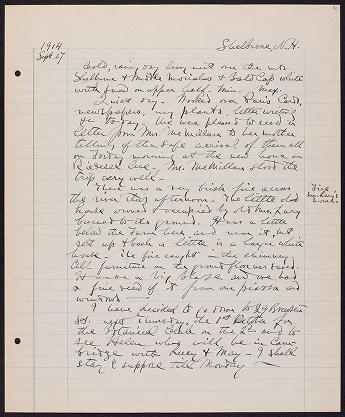 1914
Sept. 27
Shelburne, N.H.
Cold, rainy day heavy mist over the mts.
Shelburne & Middle Moriahs & Bald Cap white
with snow on upper half. Min. Max.
Quiet day. Worked over Paris Card,
newspapers, my plants, letter writing
&c to-day. We were pleased to read a
letter from Mrs. McMillan to her mother
telling of the safe arrival of them all
on Friday morning at the new home on
Riedesel Ave. Mr. McMillan stood the
trip very well.
There was a very brisk fire across
the river this afternoon. The little old
house owned & occupied by old Mrs.
burned to the ground. It was a little
below the Farm here and near it, but
set up & back a little is a large white
house. The fire caught in the chimney.
All furniture on the ground floor was saved.
It made a big blaze and we had
a fine view of it from our piazza and
windows —
I have decided to go down to
St. next Thursday, the 1st October for
the Botanical Club on the 2nd and to
see Helen who will be in Cam-
bridge with Lucy & May — I shall
stay I suppose till Monday —
Fire